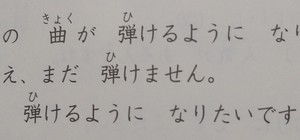 の 曲が 弾けるように な
え、まだ 弾けません。
弾けるように なりたいです